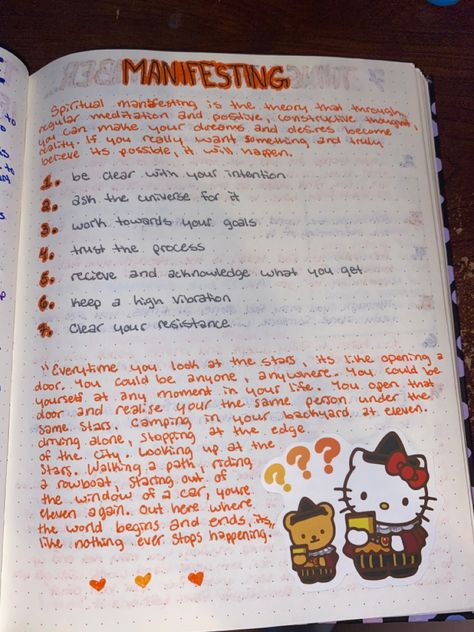 MANIFESTING
Spiritual manifesting is the theory that through
regular meditation and positive, constructive thought,
you can make your dreams and desires become
reality. If you really want something and truly
believe its possible, it will happen.
1. be clear with your intention
2. ask the universe for it
3. work towards your goals
4. trust the process
5. recieve and acknowledge what you get
6. keep a high vibration
7. clear your resistance
"Everytime you look at the stars, its like opening a
door. You could be anyone, anywhere. You could be
yourself at any moment in your life. You open that
door and realise your the same person under the
same stars. Camping in your backyard at eleven.
driving alone, stopping at the edge
of the city. Looking up at the
stars. Walking a path, riding
a rowboat, staring out of
the window of a car, youre
eleven again. Out here where
the world begins and ends, its,
like nothing ever stops happening.
???